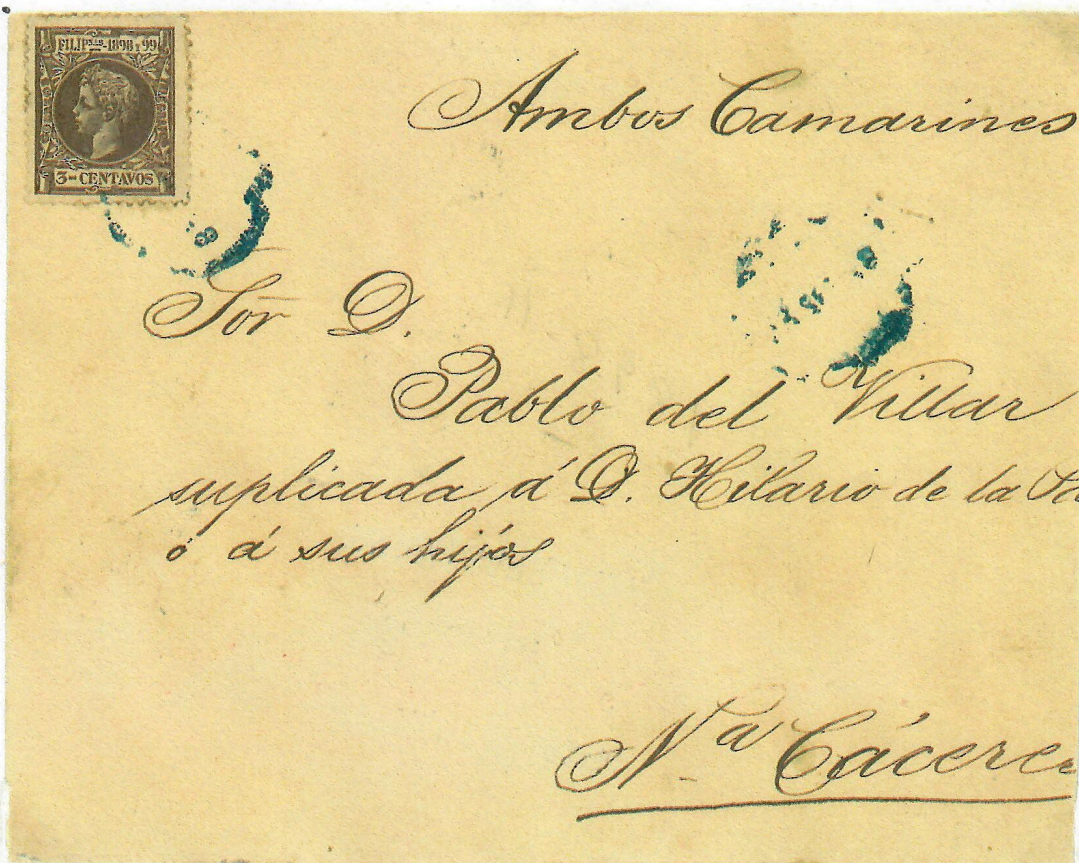 FILIPNAS-1898 Y 99
3-CENTAVOS
Ambos Camarines
Sor D.
Pablo del Villar
suplicada á D. Hilario de la
ó á sus hijos
Na Cácere